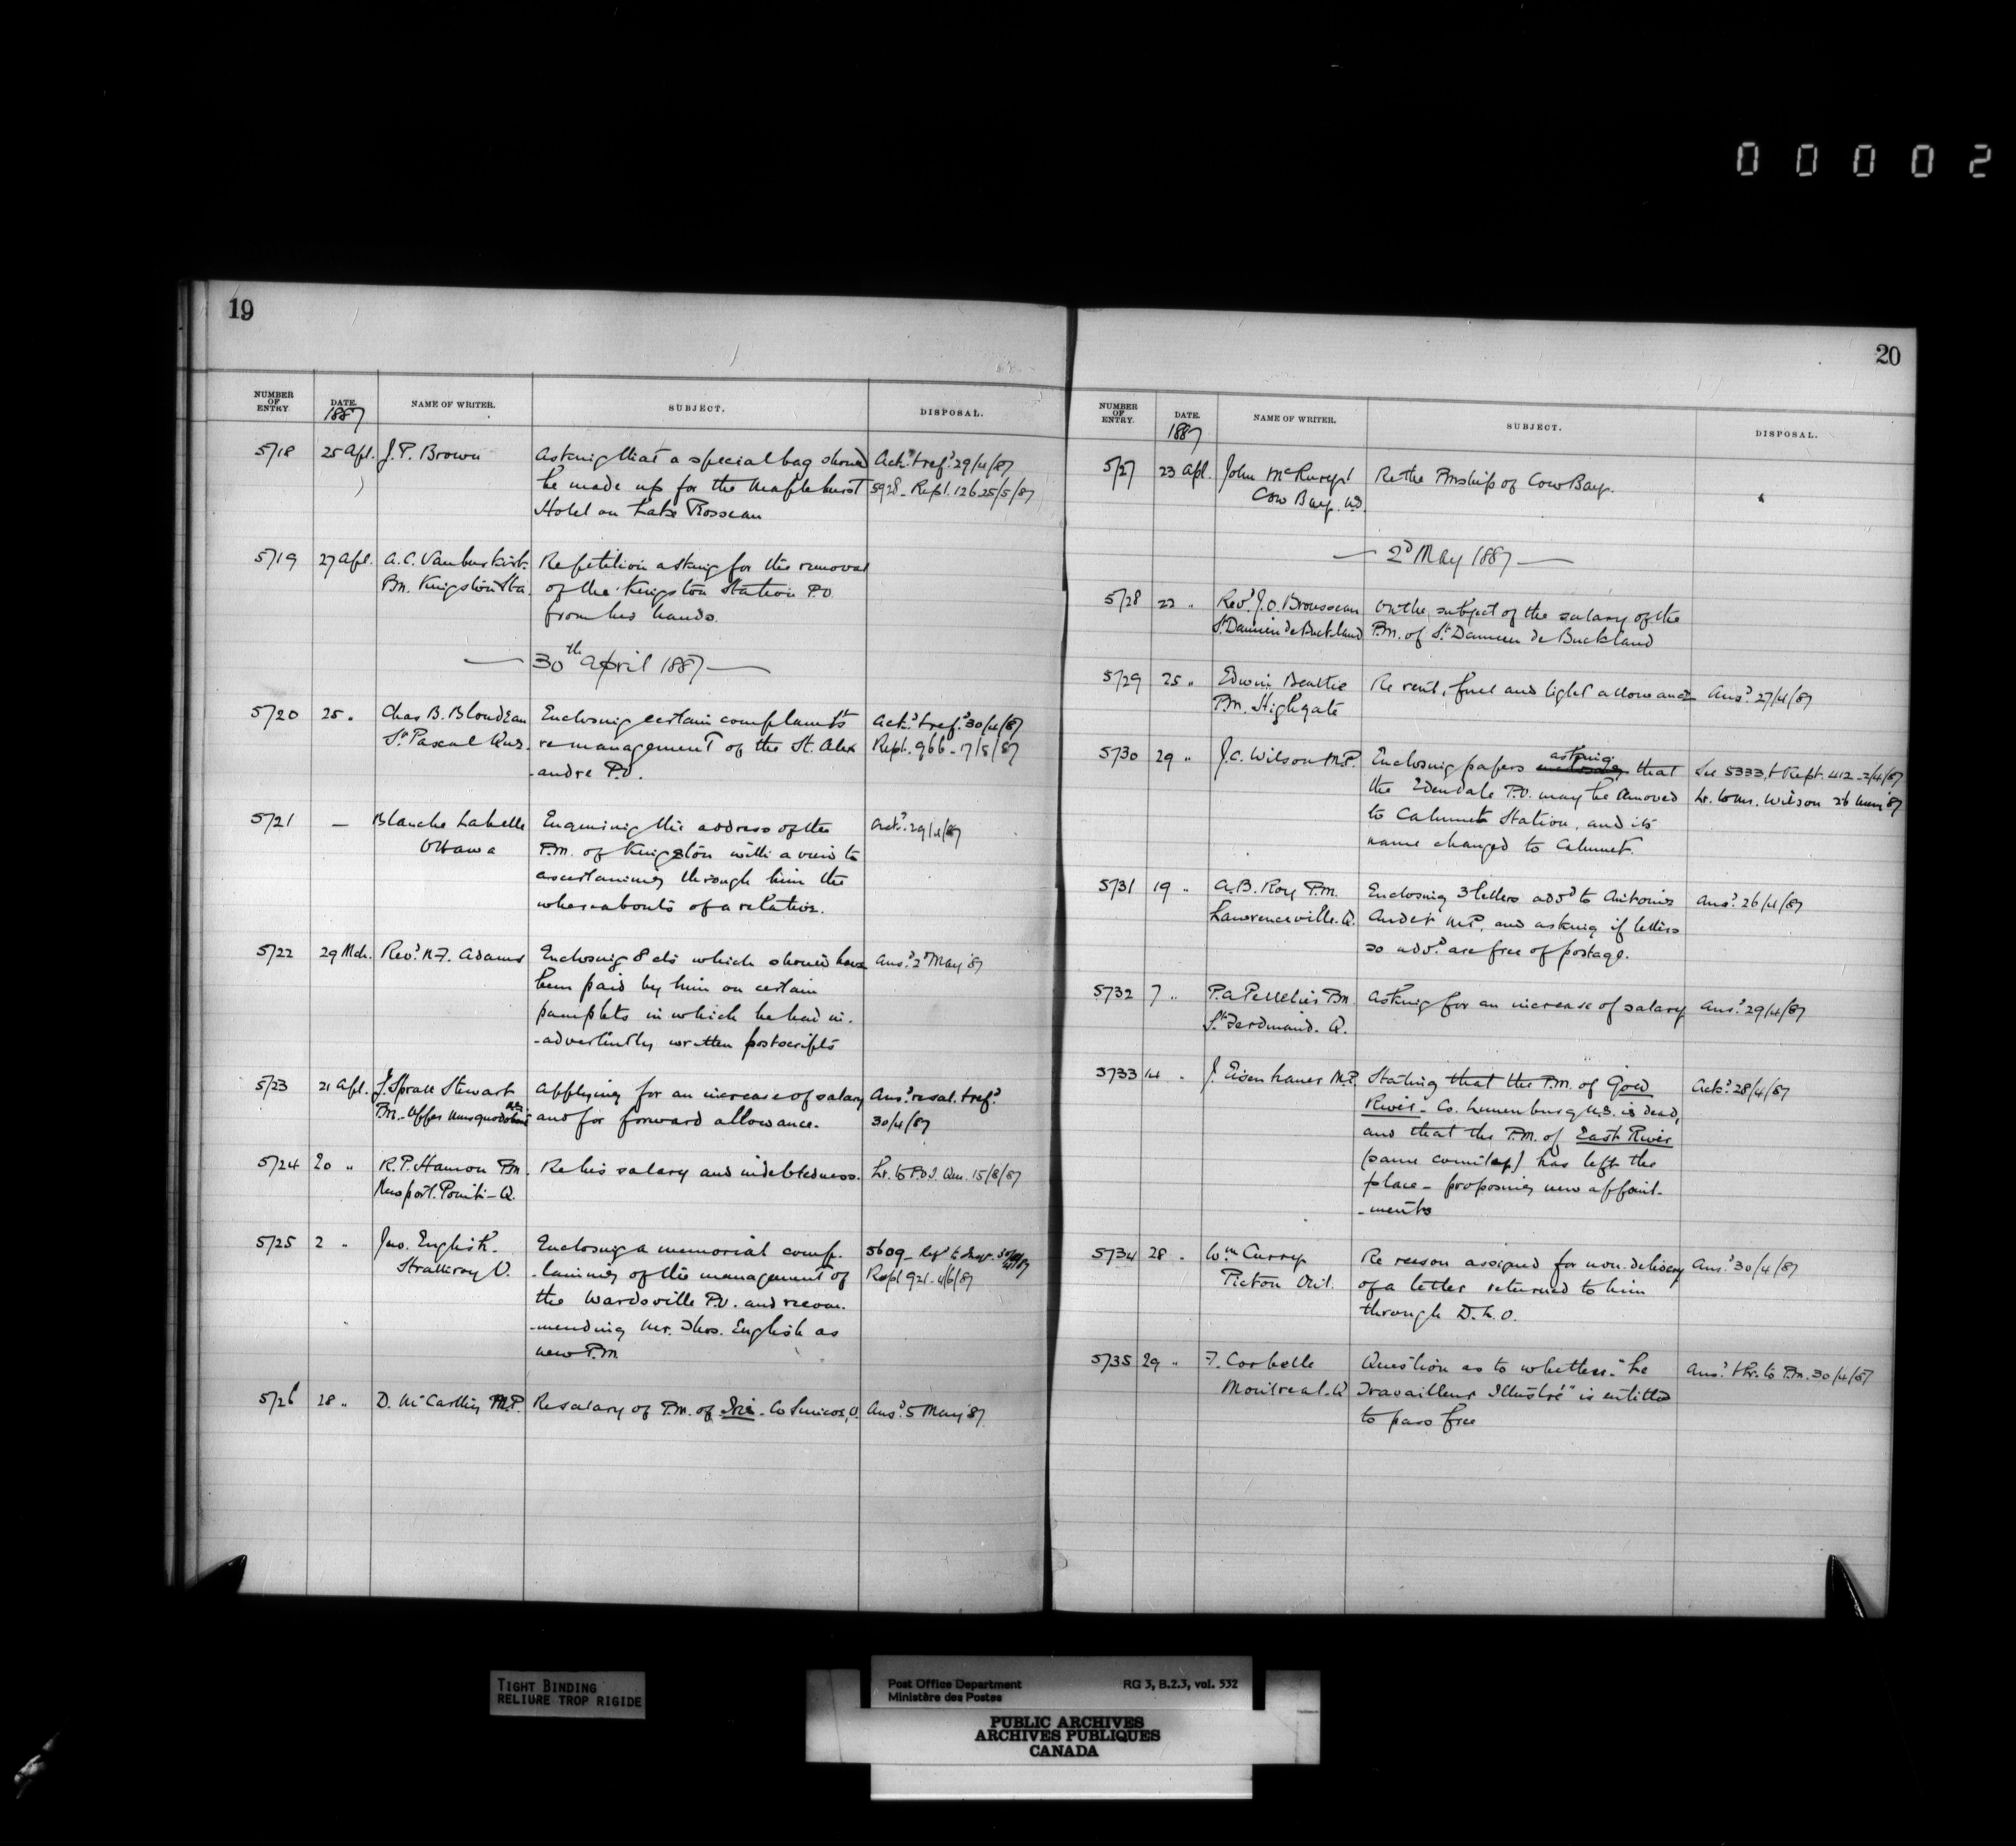 00002
19
NUMBER OF ENTRY. DATE. 1887 NAME OF WRITER. SUBJECT. DISPOSAL.
5718 25 Apl. J. P. Brown Asking that a special bag should Ackd. & refd. 29/4/87
be made up for the Maplehurst 5928 - Rept. 126 25/5/87
Hotel on Lake Rosseau
5719 27 Apl. A. C. Vanbuskirk Re petition asking for the removal
Pm. Kingston Sta. of the Kingston Station P.O.
from his hands.
30th April 1887
5720 25 " Chas B. Blondeau Enclosing certain complaints Ackd. & refd. 30/4/87
St. Pascal Que. re management of the St. Alex Rept. 966 - 17/8/87
-andre P.O.
5721 — Blanche Labelle Enquiring the address of the Ackd. 29/4/87
Ottawa P.M. of Kingston with a view to
ascertaining through him the
whereabouts of a relation.
5722 29 Mch. Revd. N. F. Adams Enclosing 8 cts which should have Ansd. 2d May '87
been paid by him on certain
pamphlets in which he had in-
-advertently written postscripts
5723 21 Apl. Sproll Stewart Applying for an increase of salary Ansd. re sal. & refd.
Pm. Upper Musquodoboit and for forward allowance. 30/4/87
5724 20 " R. P. Hamon Pm. Re his salary and indebtedness. Lr. to P.O.I. Que. 15/8/87
Newport Point - Q.
5725 2 " Jno. English Enclosing a memorial comp- 5609 - Refd to Inspr.
Strathroy O. -laining of the management of Rept 921 - 4/6/87
the Wardsville P.O. and recom-
-mending Mr. Thos. English as
new P.M.
5726 28 " D. McCarthy M.P. Re salary of P.M. of Ivy - Co Simcoe, O. Ansd. 5 May '87
20
NUMBER OF ENTRY. DATE. 1887 NAME OF WRITER. SUBJECT. DISPOSAL.
5727 23 Apl. John Re the Pmship of Cow Bay.
Cow Bay.
2d May 1887
5728 22 " Revd. J. O. Brousseau On the subject of the salary of the
St. Damien de Buckland Pm. of St. Damien de Buckland
5729 25 " Edwin Beattie Re rent, fuel and light allowance Ansd. 27/4/87
Pm. Highgate
5730 29 " J. C. Wilson M.P. Enclosing papers asking that See 5333, & Rept. 412 - 2/4/87
the Edendale P.O. may be removed Lr. to Mr. Wilson 26 '87
to Calumet Station, and its
name changed to Calumet.
5731 19 " A. B. Roy P.M. Enclosing 3 letters addd to Antonio Ansd. 26/4/87
Lawrenceville. Q. Audet M.P. and asking if letters
so addd. are free of postage.
5732 7 " P. A. Pelletier Pm. Asking for an increase of salary Ansd. 29/4/87
St. Ferdinand. Q.
5733 14 " J. Eisenhauer M.P. Stating that the P.M. of Gold Ackd. 28/4/87
River - Co. Lunenburg N.S. is dead,
and that the P.M. of East River
(same county) has left the
place - proposing new appoint-
-ments
5734 28 " Wm Curry Re reason assigned for non-delivery Ansd. 30/4/87
Picton Ont. of a letter returned to him
through D. L. O.
5735 29 " F. Corbelle Question as to whether "Le Ansd. & lr. to P.M. 30/4/87
Montreal. Q Travailleur Illustré" is entitled
to pass free
TIGHT BINDING
RELIURE TROP RIGIDE
Post Office Department RG 3, B.2.3, vol. 532
Ministère des Postes
PUBLIC ARCHIVES
ARCHIVES PUBLIQUES
CANADA